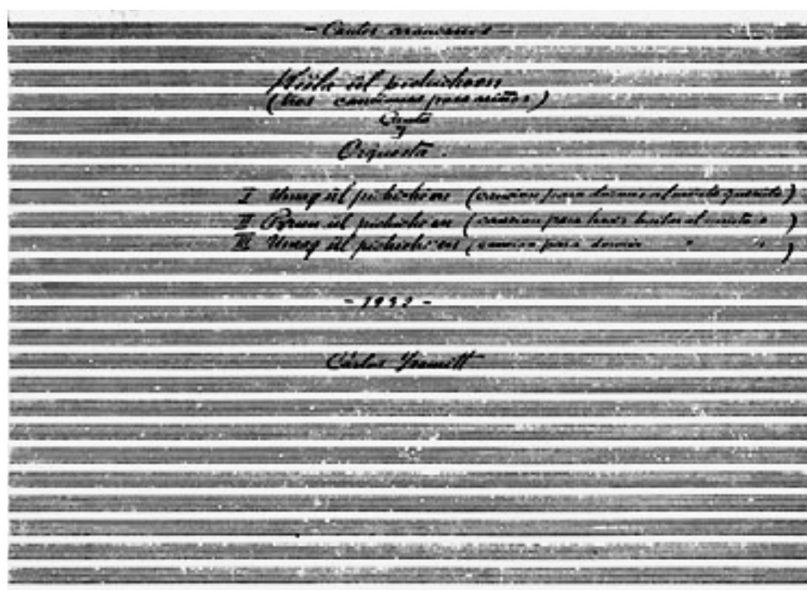 - Cantos araucanos -
Küla ül pichichoen
(tres canciones para niños)
Canto
y
Orquesta.
I Umaq ül pichichoen (canción para dormir al nietо querido)
II Pürun ül pichichoen (canción para hacer bailar al nieto " )
III Umaq ül pichichoen (canción para dormir " " )
- 1932 -
Carlos Isamitt